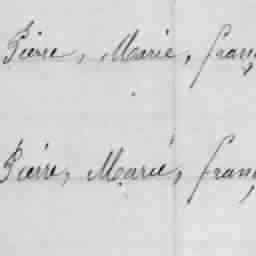 Pierre, Marie, franç
Pierre, Marie, franç